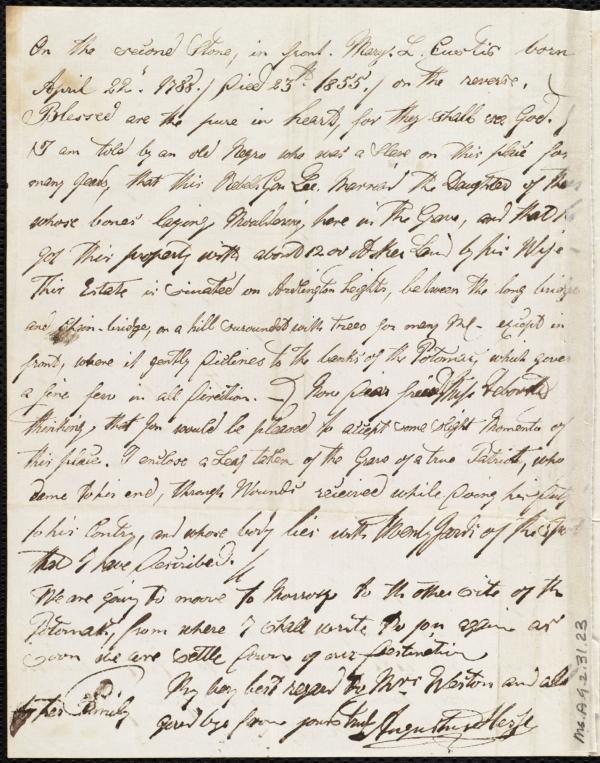 On the second Stone, in front. Mary. L. Custis born
April 22d. 1788./ Died 23th 1853./ on the reverse.
Blessed are the pure in heart, for they shall see God./
I am told by an old Negro who was a Slave on this place for
many years, that this Rebel Gen Lee. Married the Daughter of
whose bones laying Mouldering here in the Grave, and that
got this property with about 1200 Acker Land by his Wife
This Estate is situated on Arlington heights, between the long bridge
and chain-bridge, on a hill suroundet with trees for many Ml- except in
front, where it gently declines to the banks of the Potomac, which gives
a fine few in all direction. Now dear
thinking, that you would be pleased to accept some slight Momento of
this place. I enclose a Leaf taken of the Grave of a true Patriot, who
came to his end, through Wounds received while doing his duty
to his Contry, and whose body lies with Twenty yards of the spot
that I have described.
We are going to moove to Morrow to th other site of the
Potomac, from where I shall write to you again as
soon we are settle down of our destination
My very best regard to Mrs Weston and all
by her Family good bye from yours truly Augustus Hesse
Ms.A.9.2.31.23